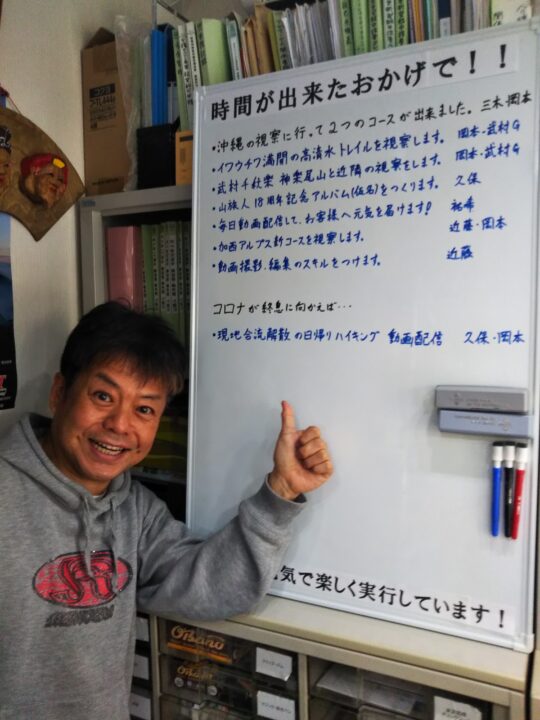 時間が出来たおかげで!!
・沖縄の視察に行って2つのコースが出来ました。 三木・岡本
・イワウチワ満開の高清水トレイルを視察します。 岡本・武村G
・武村千秋楽 神楽尾山と近隣の視察をします。 岡本・武村G
・山旅人18周年記念アルバム(仮名)をつくります。 久保
・毎日動画配信して、お客様へ元気を届けます! 祐希
・加西アルプス新コースを視察します。 近藤・岡本
・動画撮影.編集のスキルをつけます。 近藤
コロナが終息に向かえば…
・現地合流解散の日帰りハイキング 動画配信 久保・岡本
気で楽しく実行しています!